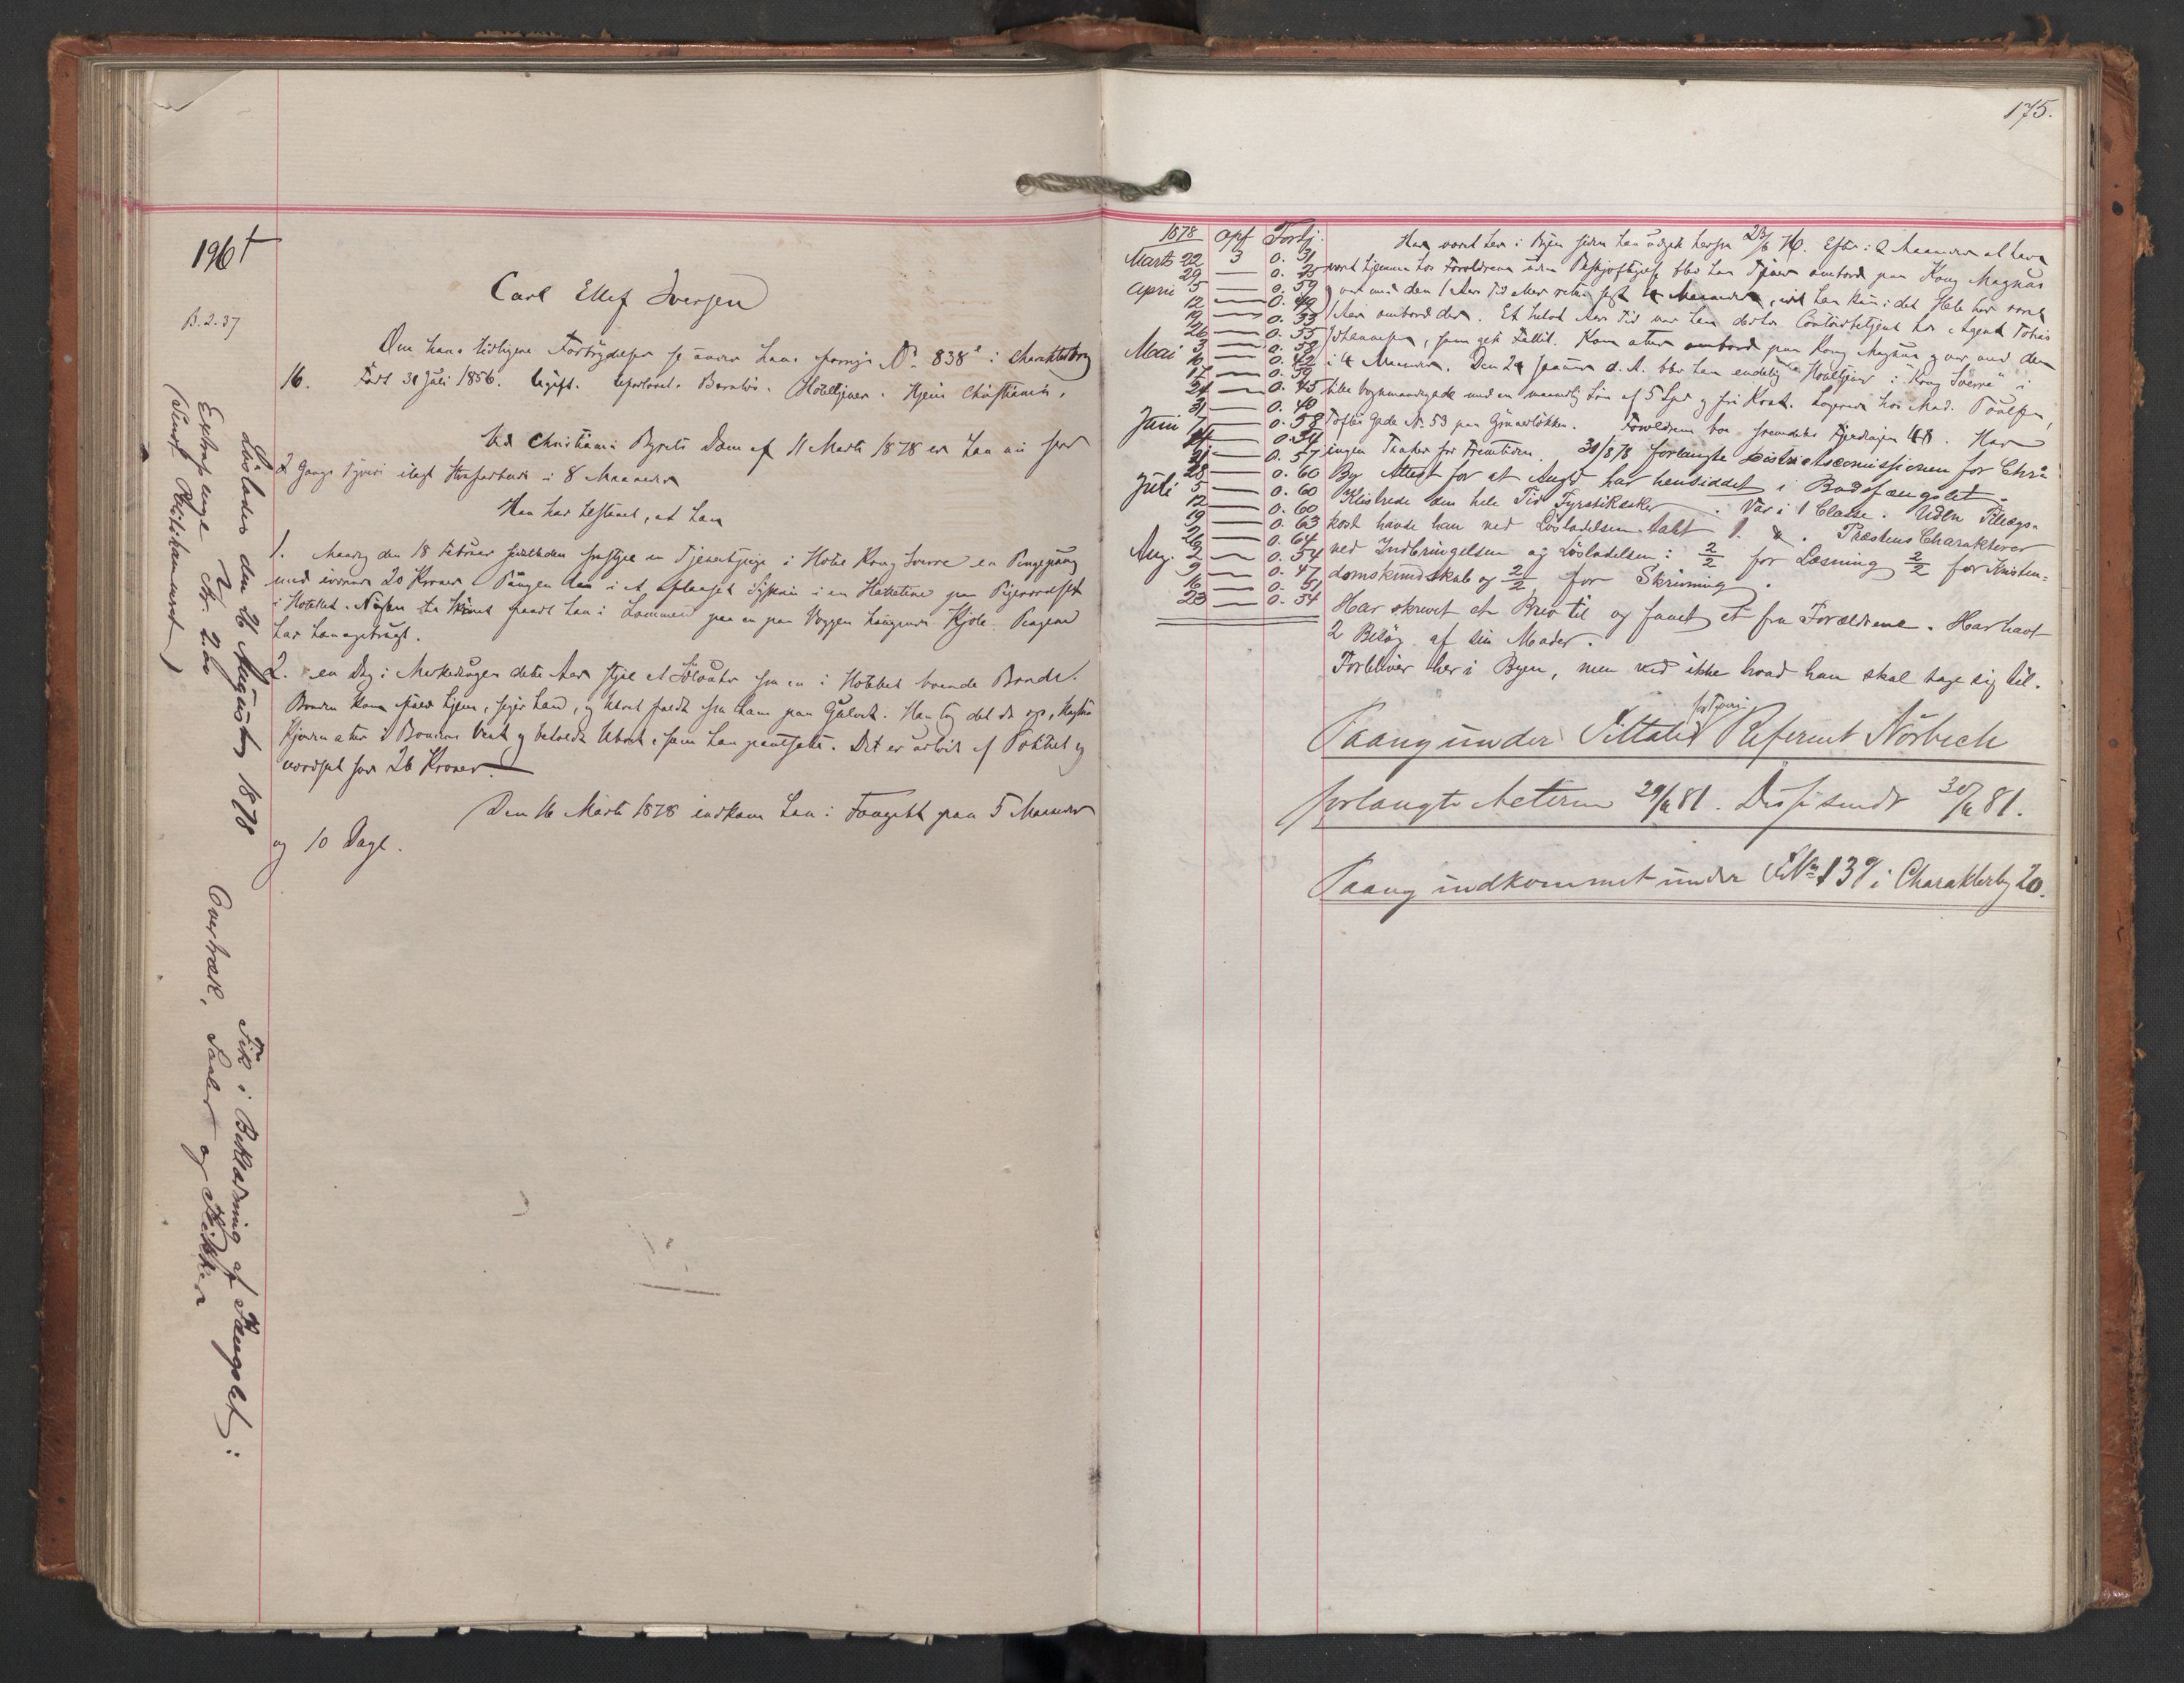 196 t
B. 2. 37
Carl Ellef Iversen
Om hans tidligere Forbrydelser se under hans forrige No 838 i Charakterbog
16. Født 31 Juli 1856. Ugift. Barnløs. Hoteltjener. Hjem Christiania.
Ved Christiania Byrets Dom af 11 Marts 1878 er han nu for
2 Gangs Tyveri ilagt Strafarbeide i 8 Maaneder
Han har tilstaaet, at han
1. Mandag den 18 Februar frastjal en Tjenestepige i Hotel Kong Sverre en Pengepung
med 20 Kroner. Pungen laa i et aflaaset i en paa Pigeværelset
i Hotellet. Nøglen fandt han i Lommen paa en paa Væggen hængende Kjole. Pengene
har han opbrugt.
2. en Dag i Markedsugen dette Aar stjal et Sølvuhr fra en i Hotellet boende Bonde.
Bonden kom hjem, siger han, og Uhret faldt fra ham paa Gulvet. Han tog det da op,
Kjæden atter i Bondens Vest og beholdt Uhret, som han pantsatte. Det er af og
vordsat for 26 Kroner.
Den 16 Marts 1878 indkom han i Fængslet paa 5 Maaneder
og 10 Dage.
Løslades den 26 Augustus 1878
Extrapenge Kr. 2.60
(Sendt Politikammeret)
Fik i Beklædning af Fængslet:
Overtræk, Saaler og Flikker
175.
1878 opf Fortj.
Marts 22 3 0. 31
29 — 0. 25
April 5 — 0. 59
12 — 0. 49
19 — 0. 33
26 — 0. 55
Mai 3 — 0. 58
10 — 0. 42
17 — 0. 59
24 — 0. 45
31 — 0. 40
Juni 7 — 0. 58
14 — 0. 34
21 — 0. 57
28 — 0. 60
Juli 5 — 0. 60
12 — 0. 60
19 — 0. 63
26 — 0. 64
Aug. 2 — 0. 54
9 — 0. 47
16 — 0. 51
23 — 0. 54
Har været her i Byen siden han udgik herfra 23/6 76. Efter i 2 Maaneder at have
været hjemme hos Forældrene uden Beskjæftigelse blev han Tjener ombord paa Kong Magnus
og var med den 1 Aars Tid eller
1 Aar ombord der. Et halvt Aars Tid var han derfor Contorbetjent hos Agent Tobias
Johannesen, som gik Fallit. Kom atter ombord paa Kong Magnus og var med den
i 4 Maaneder. Den 24 Januar d. A. blev han endelig Hoteltjener i "Kong Sverre" i
Lille Vognmandsgade med en maanedlig Løn af 5 Spd og fri Kost. Logerede hos Mad. Poulsen,
Toftes Gade No 53 paa Grünerløkken. Forældrene bor fremdeles Fjerdingen 48. Har
ingen Tanker for Fremtiden. 30/8 78 forlangte Districtscomissionen for Chra
By Attest for at Angj. har hensiddet i Bodsfængslet.
Klistrede den hele Tid Fyrstikæsker. Var i 1 Classe. Uden Tillægs-
kost havde han ved Løsladelsen tabt 1 . Præstens Charakterer
ved Indbringelsen og Løsladelsen: 2/2 for Læsning 2/2 for Kristen-
domskundskab og 2/2 for Skrivning.
Har skrevet et Brev til og faaet et fra Forældrene. Har havt
2 Besøg af sin Moder.
Forbliver her i Byen, men ved ikke hvad han skal tage sig til.
for Tyveri
Paany under Tiltale Referent Nørbech
forlangte Acterne 29/6 81. Disse sendt 30/6 81.
Paany indkommet under No 139 i Charakterbog 20.